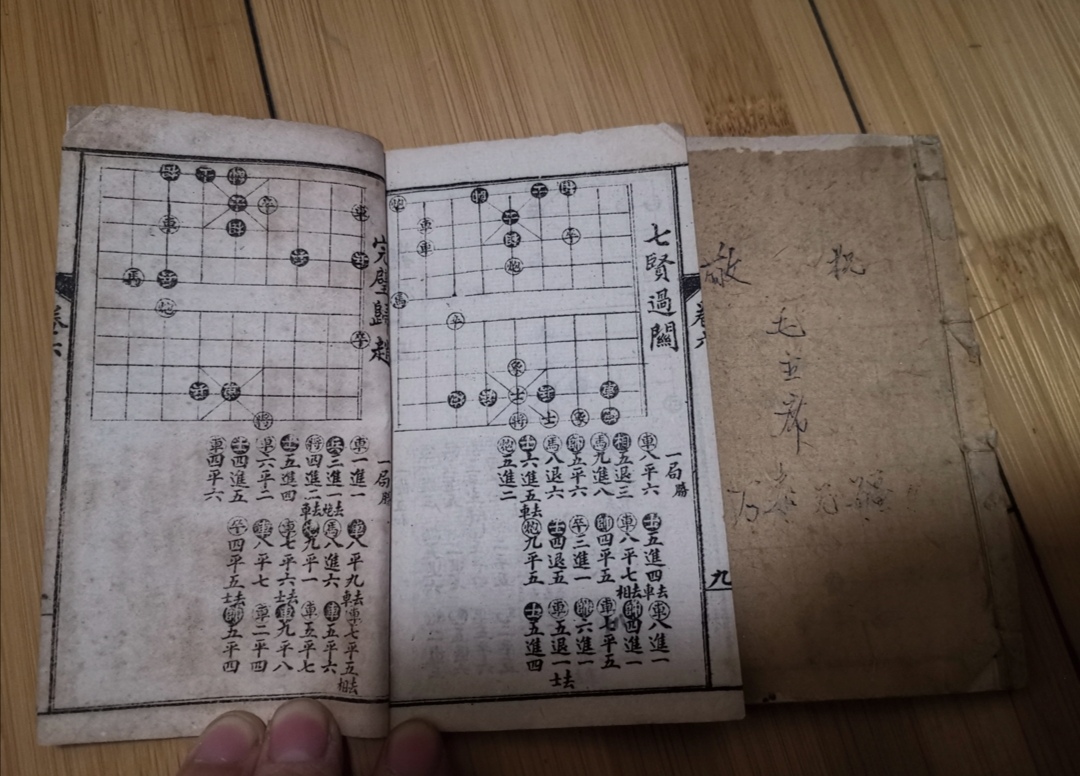 七賢過關
卷六
九
一局勝
車八平六
士五進四去車
車八進一
相五退三
車八平七去相
帥四進一
馬九進八
帥四平五
車七平五
帥五平六
卒三進一
帥六進一
馬八退六
士四退五
車五退一去士
士六進五去車
炮九平五
士五進四
炮五進二
完璧歸趙
卷六
一局勝
車一進一
車八平九去車
車七平五去相
兵三進一去炮
馬八進六
車五平六
將四進二去車
九平一
車五平七
士五進四
車七平六去士
車九平八
六平二
車八平七
車二平四
士四進五
卒四平五去士
帥五平四
車四平六
敬
祝
毛主席